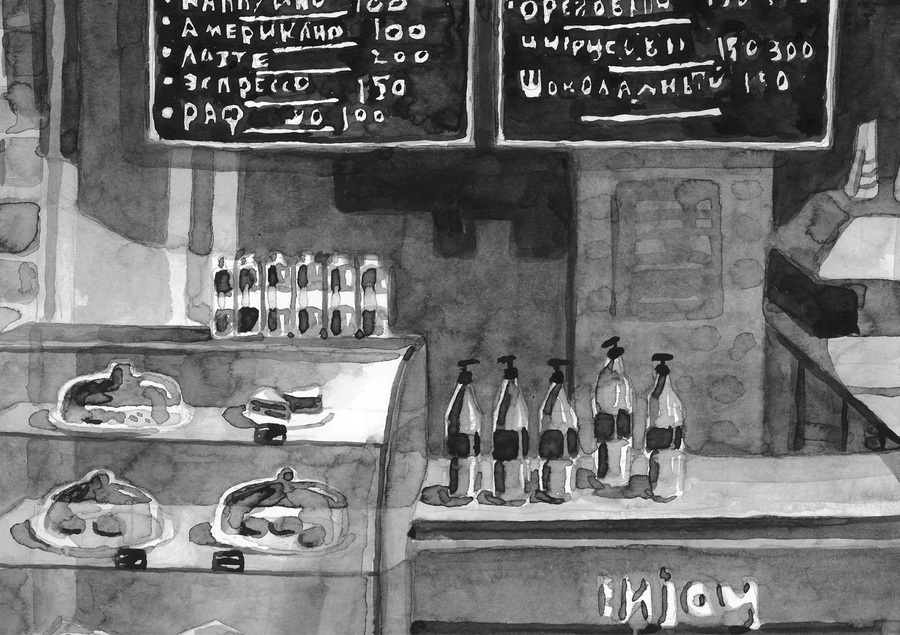 капучино 100
Американо 100
Латте 200
Эспрессо 150
РАФ 100
ореховый
150 300
Шоколадный
Enjoy